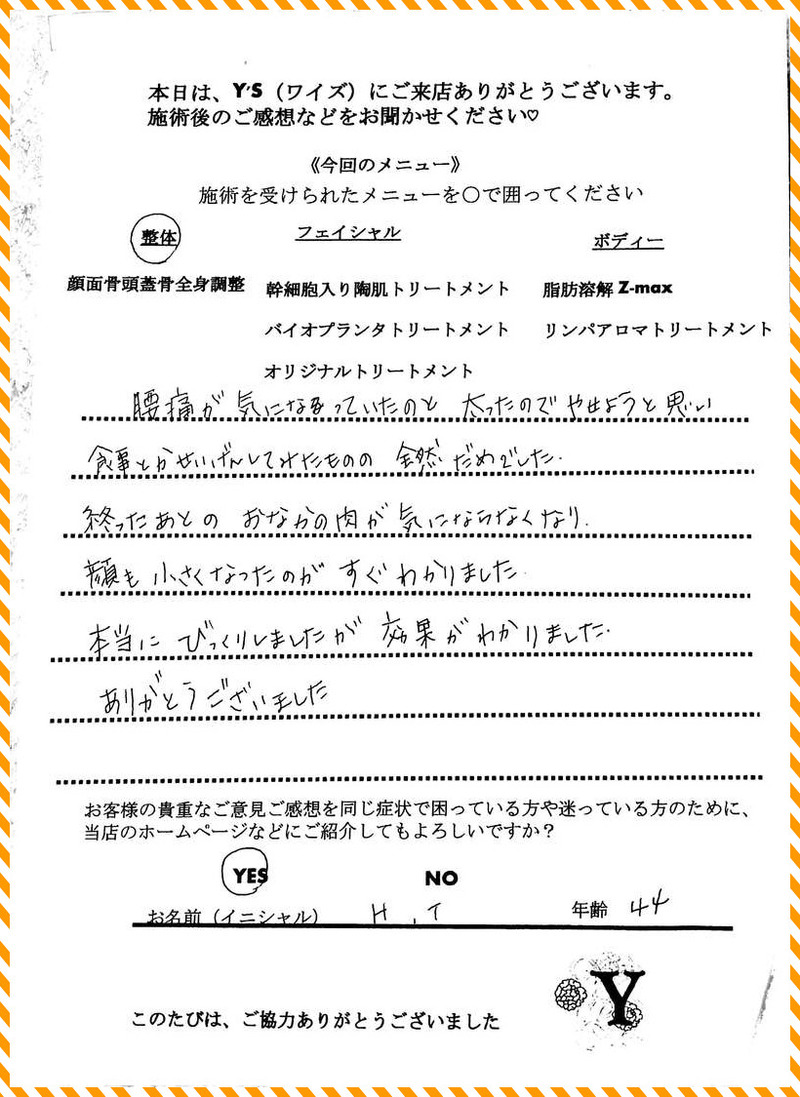 本日は、Y'S（ワイズ）にご来店ありがとうございます。
施術後のご感想などをお聞かせください♡
《今回のメニュー》
施術を受けられたメニューを〇で囲ってください
整体 フェイシャル ボディー
顔面骨頭蓋骨全身調整 幹細胞入り陶肌トリートメント 脂肪溶解 Z-max
バイオプランタトリートメント リンパアロマトリートメント
オリジナルトリートメント
腰痛が気になっていたのと 太ったのでやせようと思い
食事とかせいげんしてみたものの 全然だめでした.
終ったあとの おなかの肉が 気にならなくなり.
顔も小さくなったのが すぐわかりました.
本当に びっくりしましたが 効果がわかりました.
ありがとうございました
お客様の貴重なご意見ご感想を同じ症状で困っている方や迷っている方のために、
当店のホームページなどにご紹介してもよろしいですか？
YES NO
お名前（イニシャル） H . T 年齢 44
Y
このたびは、ご協力ありがとうございました